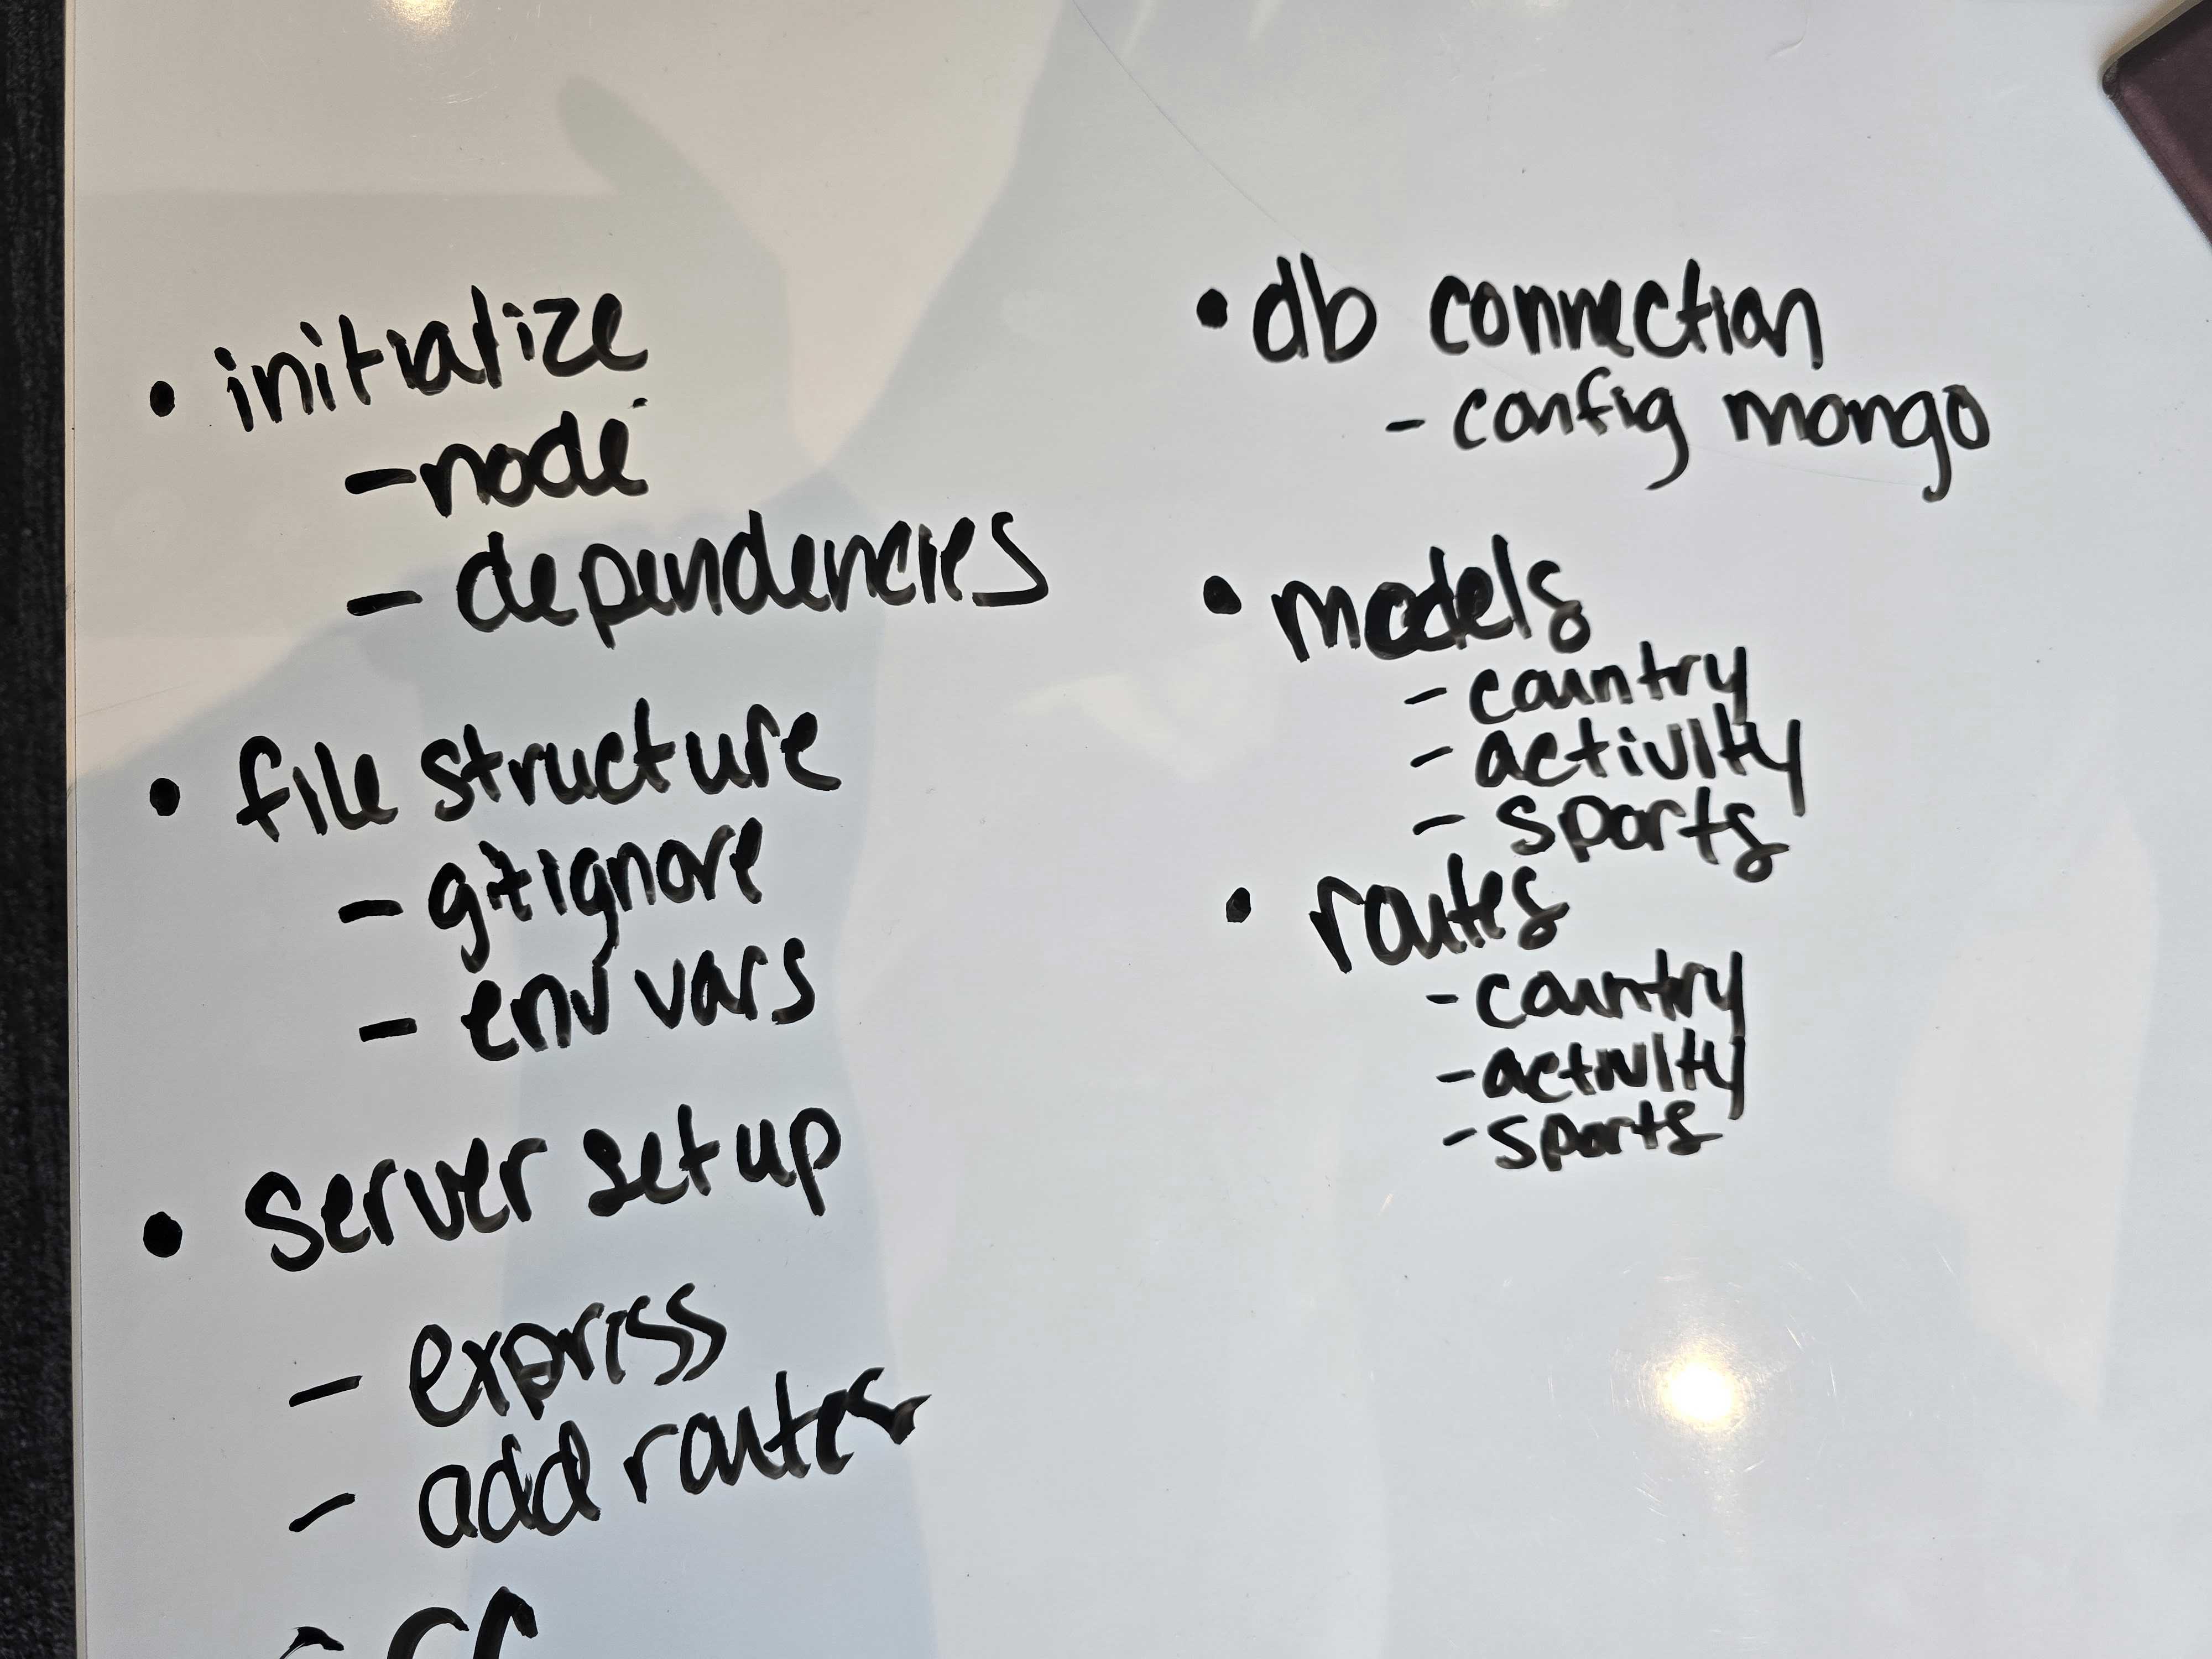 • initialize
- node
- dependencies
• file structure
- gitignore
- env vars
• server setup
- express
- add routes
• db connection
- config mongo
• models
- country
- activity
- sports
• routes
- country
- activity
- sports